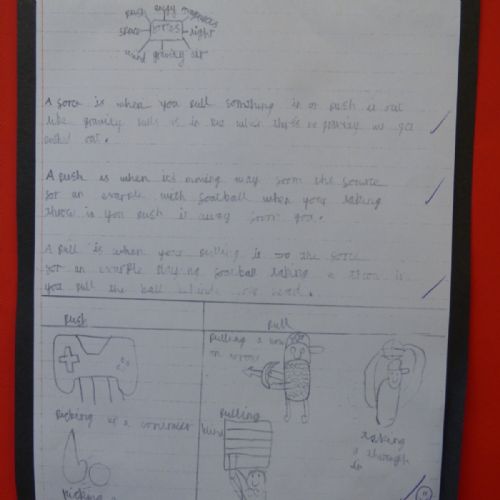 push angry magnets
space forces light
wind gravity air
A force is when you pull something in or push it out
like gravity pulls it in but when there's no gravity we get
pushed out.
A push is when it's moving way from the source
for an example with football when your taking
throw in you push it away from you.
A pull is when your pulling it to the force
for an example playing football taking a throw in
you pull the ball behind your head.
push
pull
pulling a bow
Pulling
blind
taking
a through
in
Picking up a controller
kicking a